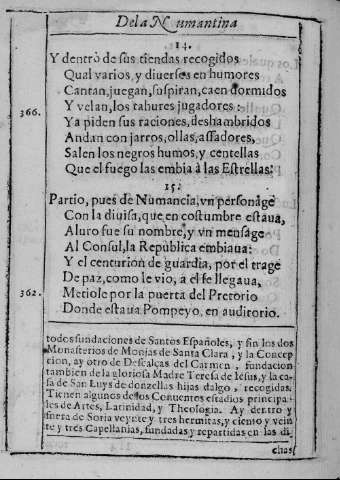 De la Numantina
14.
Y dentrò de sus tiendas recogidos
Qual varios, y diuersos en humores
Cantan, juegan, suspiran, caen dormidos
366.
Y velan, los tahures jugadores:
Ya piden sus raciones, deshambridos
Andan con jarros, ollas, assadores,
Salen los negros humos, y centellas
Que el fuego las embia à las Estrellas:
15:
Partio, pues de Numancia, vn personage
Con la diuisa, que en costumbre estaua,
Aluro fue su nombre, y vn mensage
Al Consul, la Republica embiaua:
Y el centurion de guardia, por el trage
De paz, como le vio, à el se llegaua,
362.
Metiole por la puerta del Pretorio
Donde estaua Pompeyo, en auditorio.
todos fundaciones de Santos Españoles, y sin los dos
Monasterios de Monjas de Santa Clara, y la Concep
cion, ay otro de Descalças del Carmen, fundacion
tambien de la gloriosa Madre Teresa de Iesus, y la ca-
sa de San Luys de donzellas hijas dalgo, recogidas.
Tienen algunos de los Conuentos estudios principa-
les de Artes, Latinidad, y Theologia. Ay dentro y
fuera de Soria veynte y tres hermitas, y ciento y vein
te y tres Capellanias, fundadas y repartidas en las di-
chas